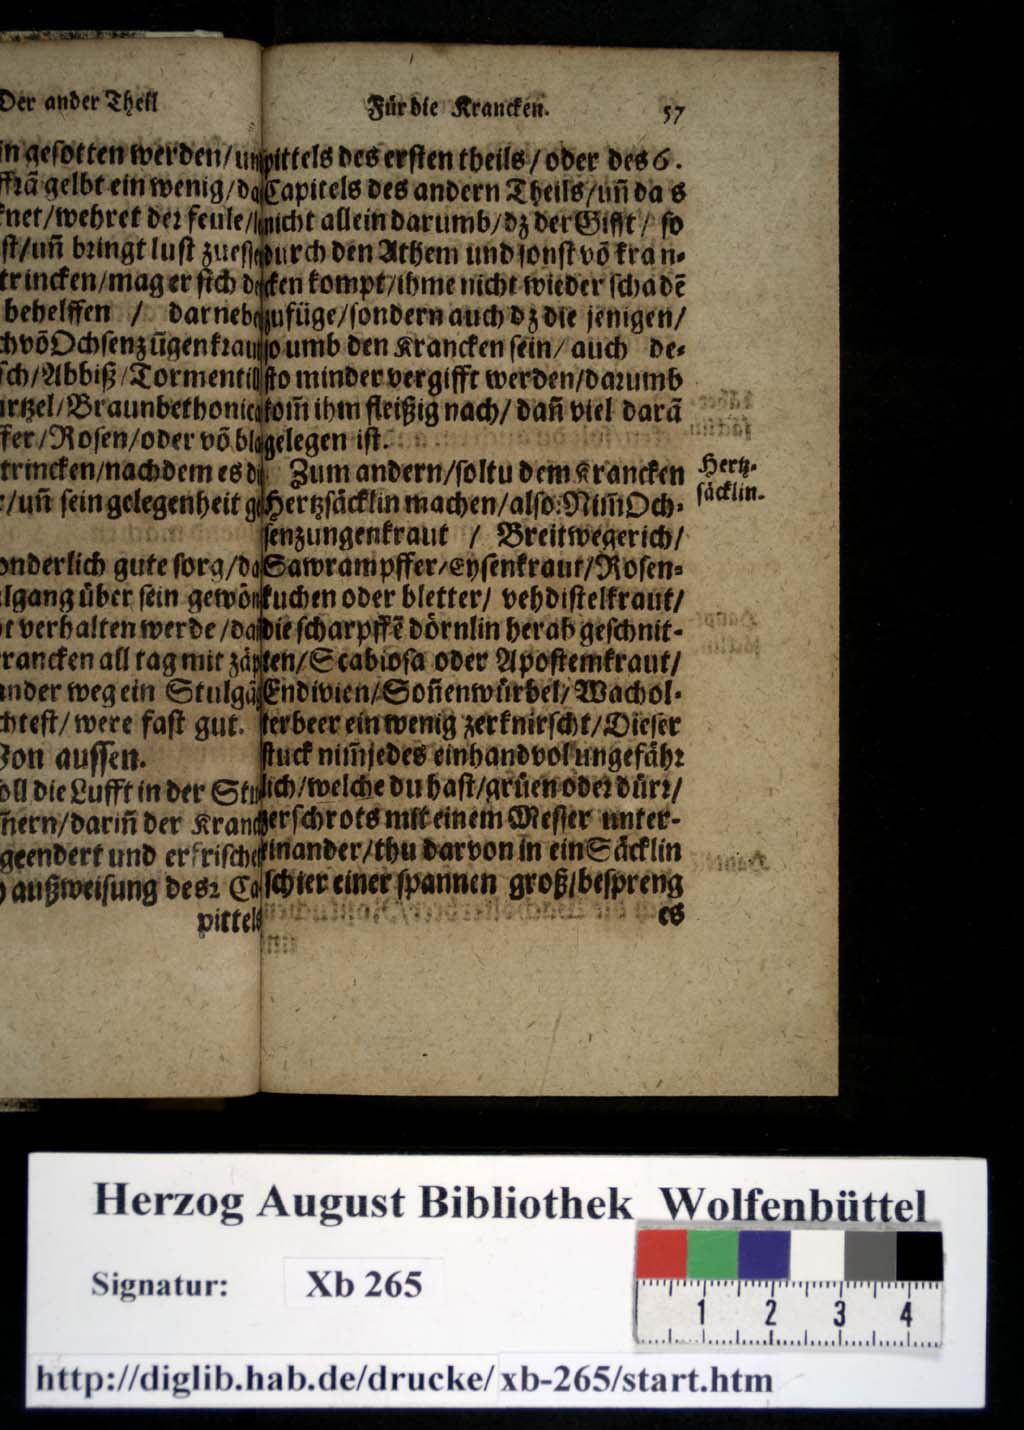 Der ander Theil
in gesotten werden/un
gelbt ein wenig/da
net/wehret der feule/
st/uñ bringt lust zuesse
trincken/mag er sich d
behelffen / darneb
ch võ Ochsenzũgenkrau
sch/Abbiß/Tormentil
urtzel/Braunbethonic
fer/Rosen/oder võ bla
trincken/nachdem es d
/uñ sein gelegenheit g
onderlich gute sorg/da
lgang über sein gewön
t verhalten werde/da
rancken all tag mit zäp
ander weg ein Stulgä
chtest/were fast gut.
Von aussen.
oll die Lufft in der Stu
ñern/dariñ der Kranc
geendert und erfrische
außweisung des 2 Ca
pittels
Für die Krancken. 57
pittels des ersten theils/oder des 6.
Capitels des andern Theils/uñ da s
nicht allein darumb/dz der Gifft/ so
durch den Athem und sonst võ kran-
cken kompt/ihme nicht wieder schadẽ
zufüge/sondern auch dz die jenigen/
so umb den Krancken sein/ auch de-
sto minder vergifft werden/darumb
kom̃ ihm fleißig nach/ dañ viel darã
gelegen ist.
Zum andern/soltu dem Krancken
Hertzsäcklin machen/also: Nim̃ Och-
senzungenkraut / Breitwegerich/
Sawrampffer/Eysenkraut/Rosen-
kuchen oder bletter/ vehdistelkraut/
die scharpffẽ dörnlin herab geschnit-
ten/Scabiosa oder Apostemkraut/
Endivien/Soñenwürbel/Wachol-
terbeer ein wenig zerknirscht/Dieser
stuck nim̃ jedes ein handvol ungefähr
lich/welche du hast/grüen oder dürr/
zerschrots mit einem Messer unter-
einander/thu darvon in ein Säcklin
schier einer spannen groß/bespreng
es
Hertz-
säcklin.
Herzog August Bibliothek Wolfenbüttel
Signatur: Xb 265
1 2 3 4
http://diglib.hab.de/drucke/xb-265/start.htm